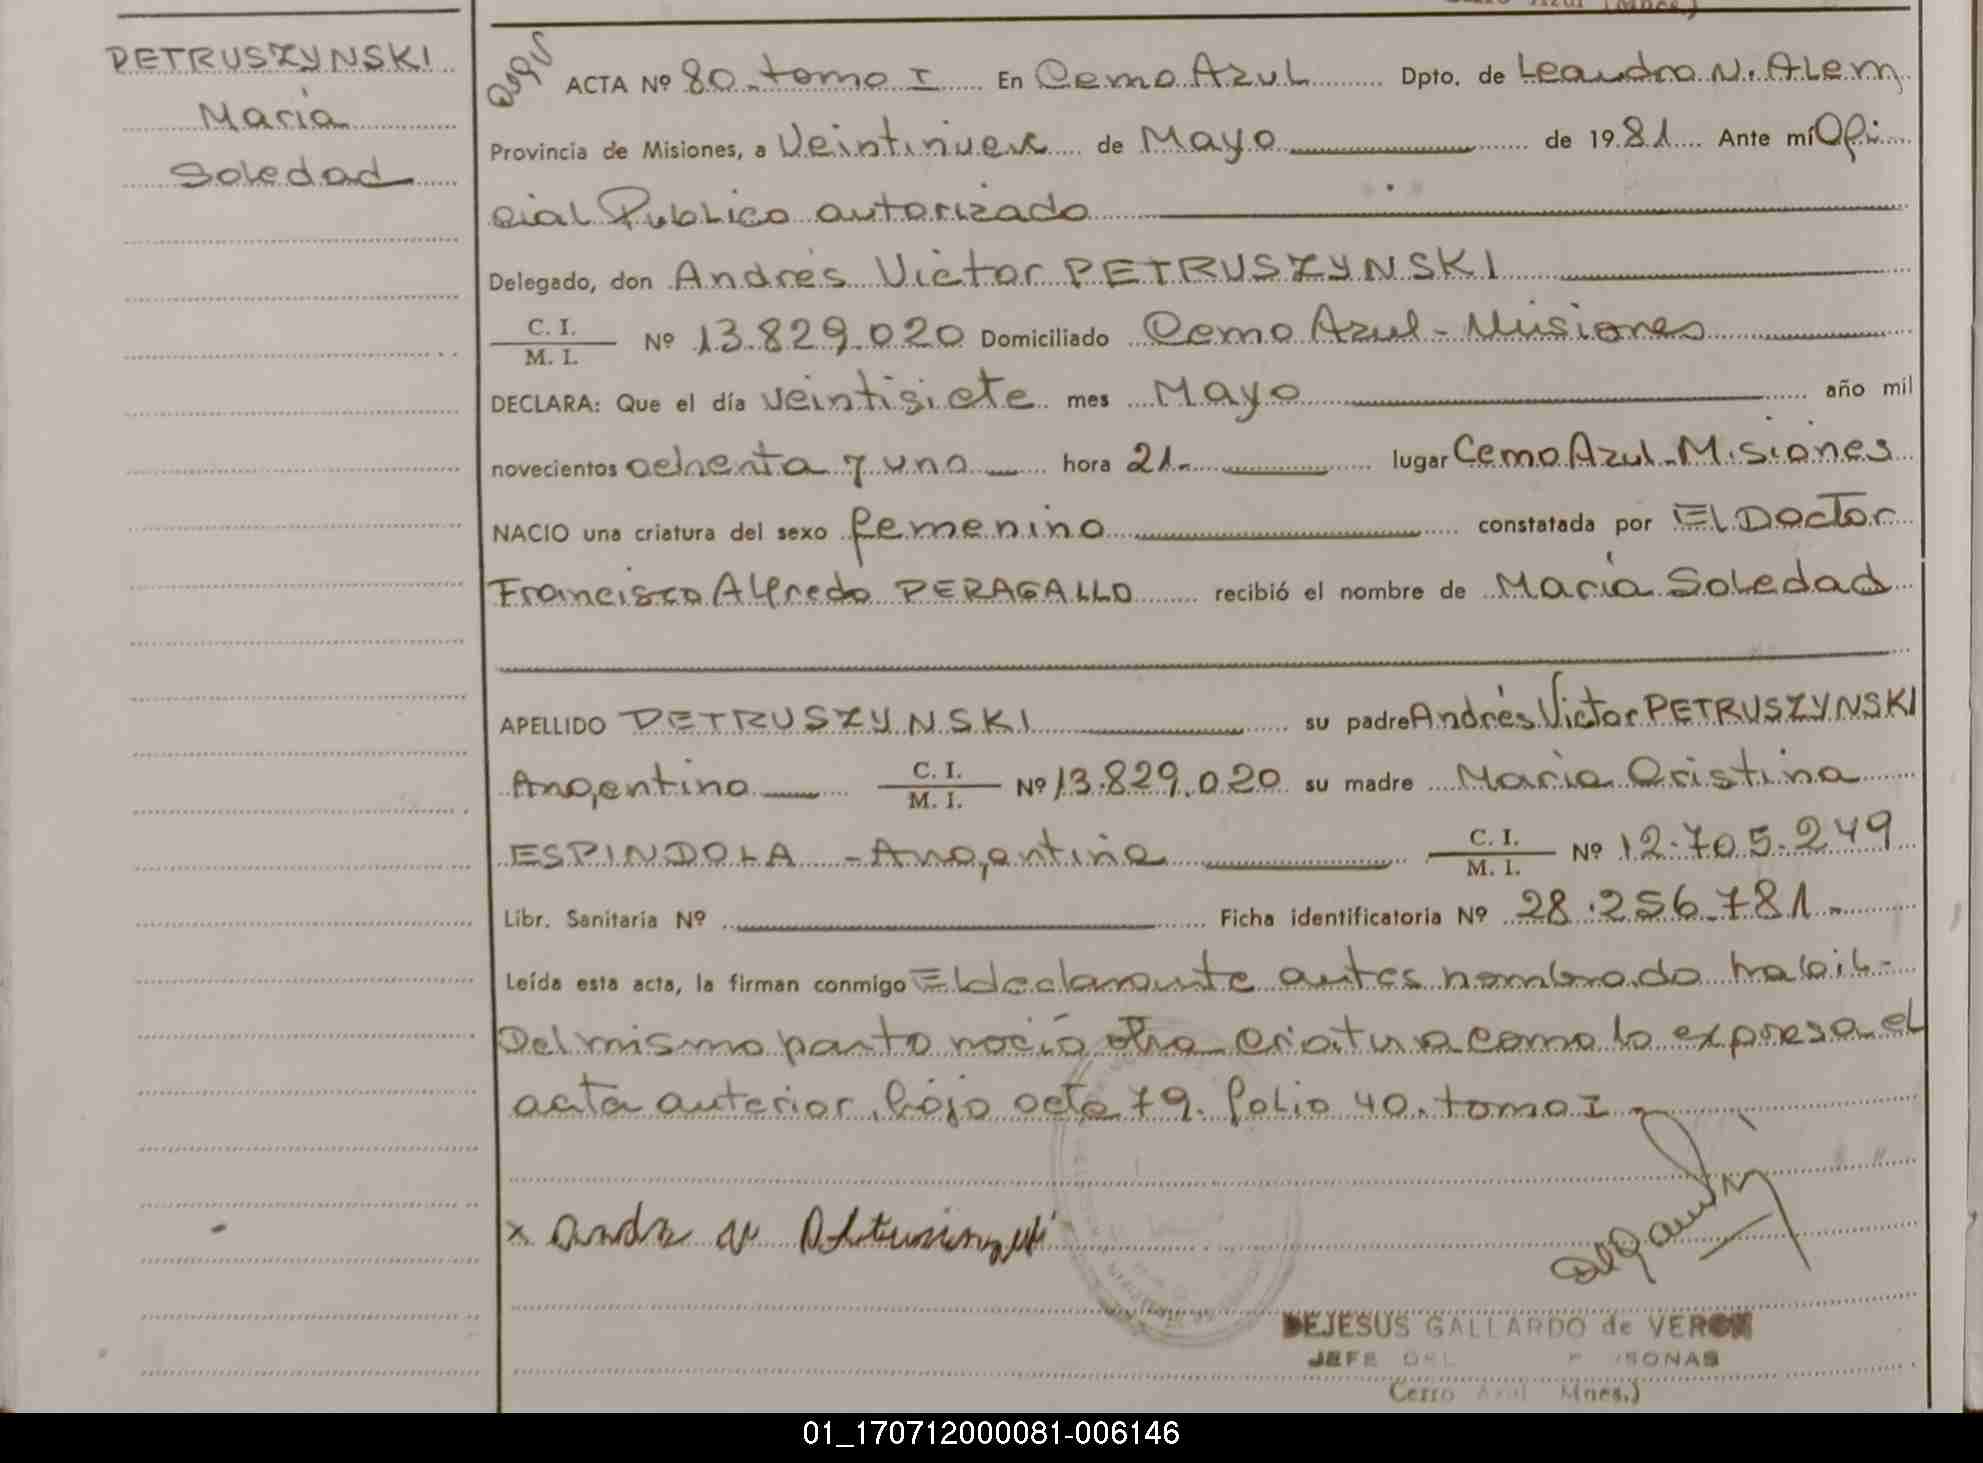 PETRUSZYNSKI
María
Soledad
ACTA Nº 80 tomo I En Cerro Azul Dpto. de Leandro N. Alem
Provincia de Misiones, a Veintinueve de Mayo de 1981 Ante mí Ofi
cial Publico autorizado
Delegado, don Andrés Victor PETRUSZYNSKI
C. I.
M. I. Nº 13.829.020 Domiciliado Cerro Azul - Misiones
DECLARA: Que el día veintisiete mes Mayo año mil
novecientos ochenta y uno hora 21.- lugar Cerro Azul - Misiones
NACIO una criatura del sexo femenino constatada por El Doctor
Francisco Alfredo PERAGALLO recibió el nombre de María Soledad
APELLIDO PETRUSZYNSKI su padre Andrés Victor PETRUSZYNSKI
Argentino C. I. M. I. Nº 13.829.020 su madre María Cristina
ESPINDOLA - Argentina C. I. M. I. Nº 12.705.249
Libr. Sanitaria Nº Ficha identificatoria Nº 28.256.781.-
Leída esta acta, la firman conmigo El declarante antes nombrado habil-
Del mismo parto nació otra criatura como lo expresa el
acta anterior, bajo acta 79. folio 40. tomo I
DEJESUS GALLARDO de VERON
JEFE
Cerro Azul Mnes.)
01_170712000081-006146